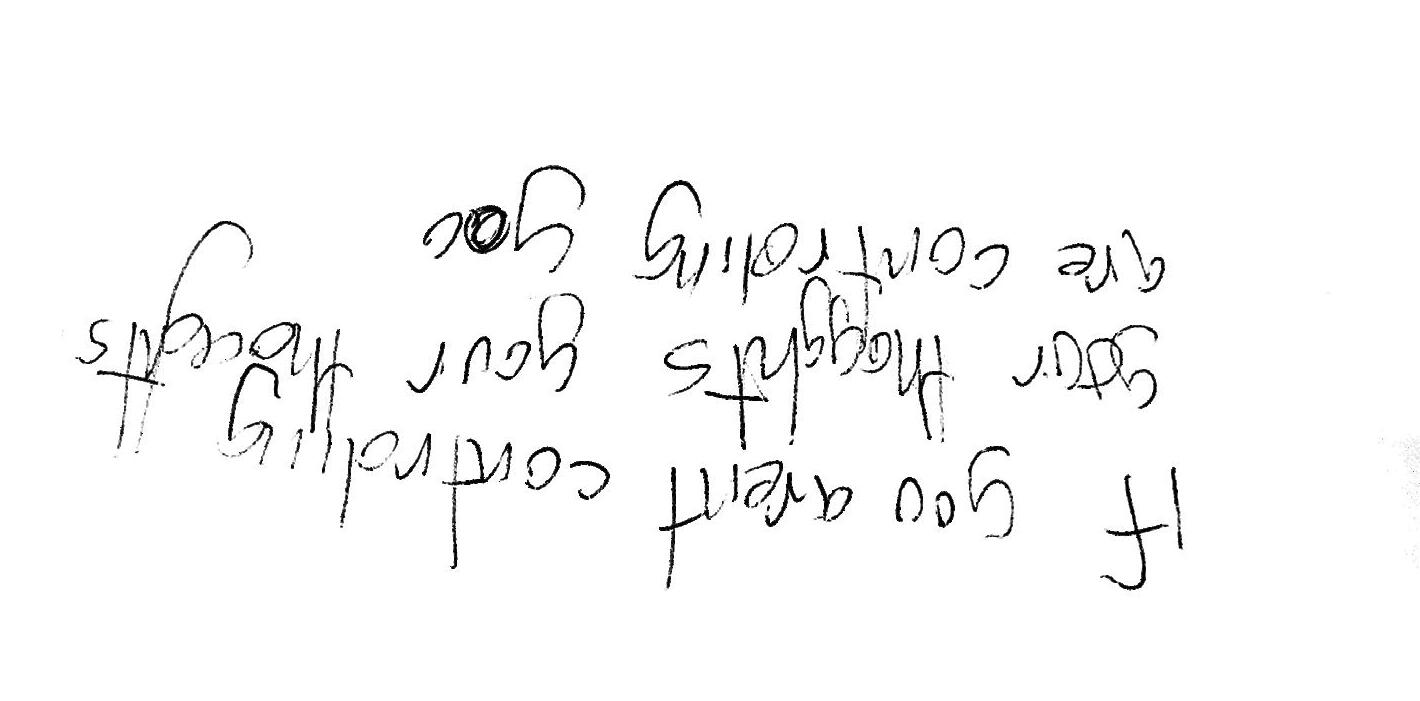 If you arent controling
your thoughts your thoughts
are controling you